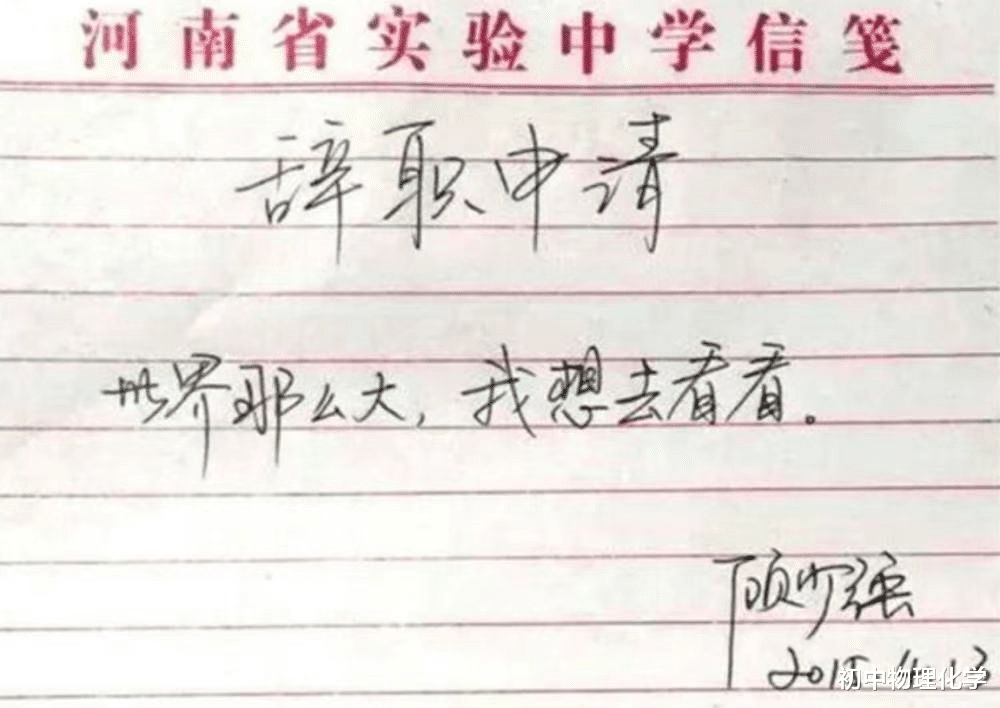 河南省实验中学信笺
辞职申请
世界那么大，我想去看看。
顾少强
初中物理化学